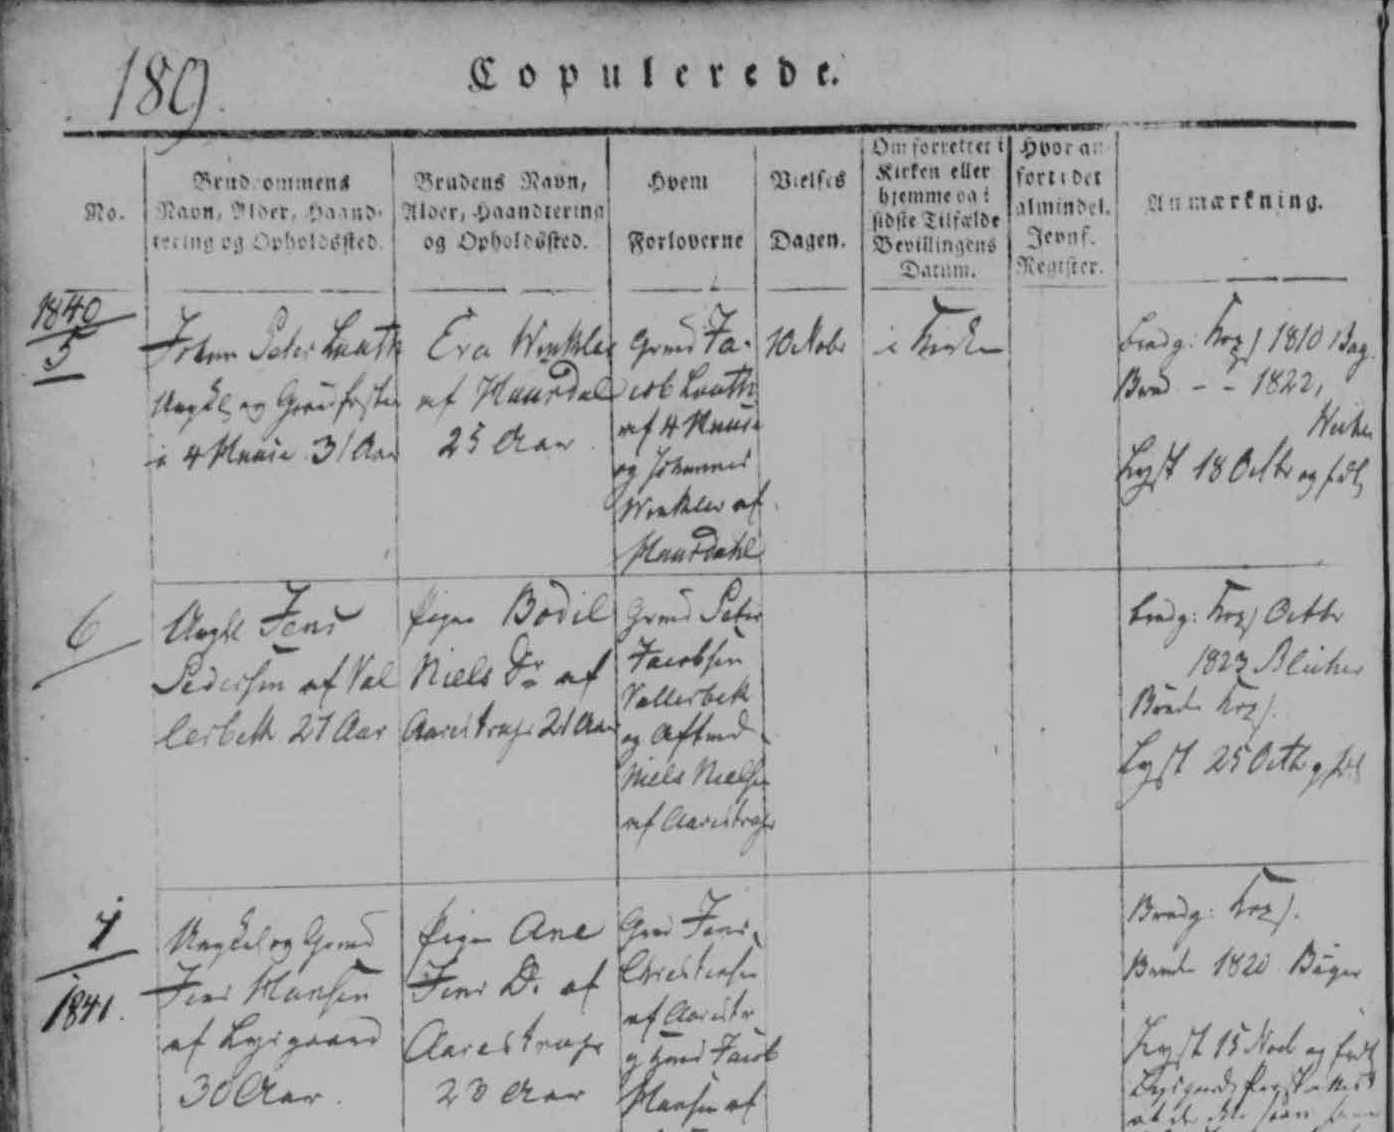 189.
Copulerede.
No.
Brudgommens
Navn, Alder, Haand-
tering og Opholdssted.
Brudens Navn,
Alder, Haandtering
og Opholdssted.
Hvem
Forloverne
Vielses
Dagen.
Om forrettet i
Kirken eller
hjemme og i
sidste Tilfælde
Bevillingens
Datum.
Hvor an-
fort i det
almindel.
Jevnf.
Register.
Anmærkning.
1840
5
Johan Peter Lauth
Ungkl og
i 31 Aar
Eva Winkler
af Haurdal
25 Aar
Gmd Ja-
cob Lauth
af
og Johannes
Winkler af
Haurdahl
i Kirken
Brudg: 1810
Brud - - 1822,
Lyst 18 Octbr og
6
Ungkl Jens
Pedersen af Val
lerbek 27 Aar
Pigen Bodil
Niels Dr af
Aarestrup 21 Aar
Gmd Peter
Jacobsen
Vallerbek
og Aftmd
Niels Nielsen
af Aarestrup
Brudg: Octbr
1823 Blicher
Brud
Lyst 25 Octb
7
1841.
Ungkl og Gmd
Jens Hansen
af Lysgaard
30 Aar.
Pigen Ane
Jens D. af
Aarestrup
23 Aar
Gmd Jens
Christensen
af Aarestr
og Gmd Jacob
Hansen af
Brudg:
Bruden 1820
Lyst 15 Nov og